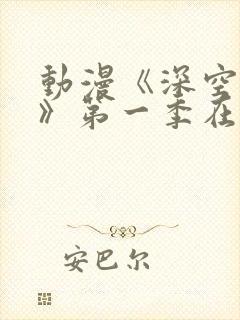 動漫《深空
》第一季在
安巴尔